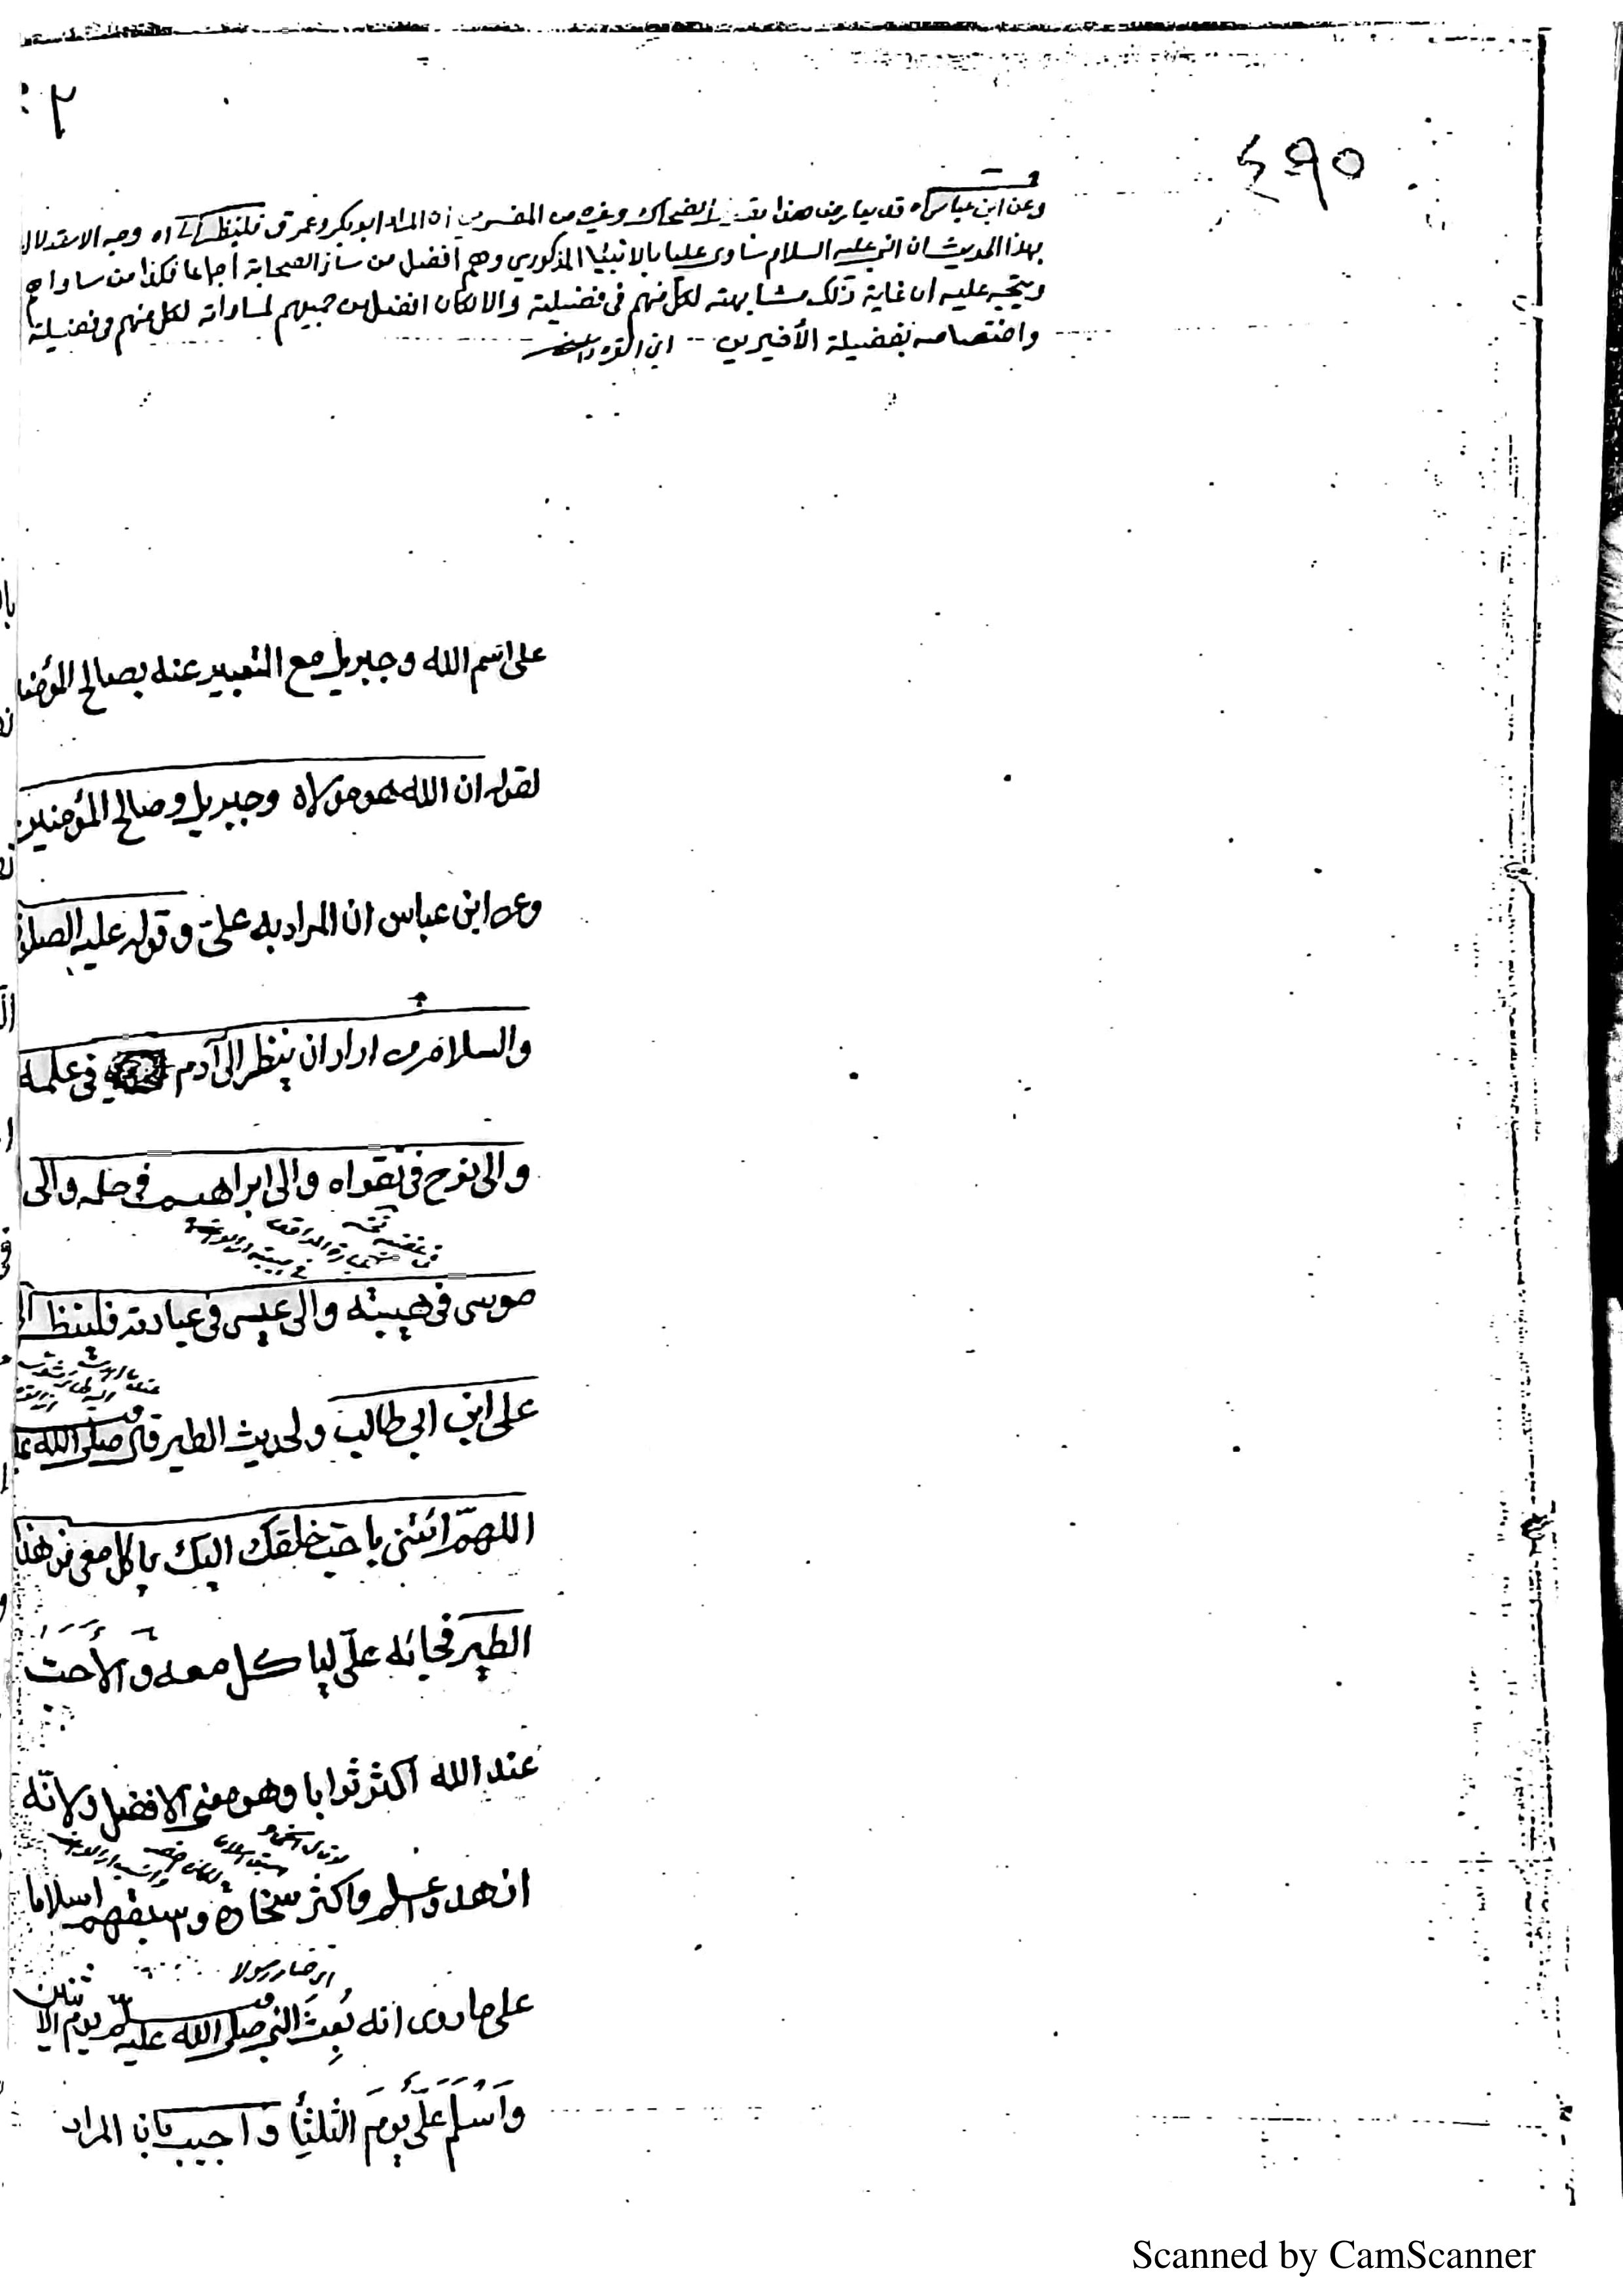 ٢
٤٩٥
وعن ابن عباس اه قد يعارض هذا بقول الضحاك وغيره من المفسرين ان المراد ابو بكر وعمر ق فلينظر الى اه وجه الاستدلال
بهذا الحديث ان النبي عليه السلام ساوى عليا بالانبيا المذكورين وهم افضل من سائر الصحابة اجماعا فكذا من ساواهم
ويتجه عليه ان غاية ذلك مشابهته لكل منهم في فضيلة والا لكان افضل من جميعهم لمساواته لكل منهم في فضيلة
واختصاصه بفضيلة الأخيرين ابن القره داغي
على اسم الله وجبريل مع التعبير عنه بصالح المؤمنين
لقوله ان الله هو مولاه وجبريل وصالح المؤمنين
وعن ابن عباس ان المراد به علىّ وقوله عليه الصلوة
والسلام من اراد ان ينظر الى آدم في علمه
والى نوح في تقواه والى ابراهيم في حلمه والى
موسى في هيبته والى عيسى في عبادته فلينظر الى
على ابن ابي طالب ولحديث الطير قال صلى الله عليه
اللهمّ ائتنى باحبّ خلقك اليك ياكل معى من هذا
الطير فجائه علىّ لياكل معه والأحبّ
عند الله اكثر ثوابا وهو معنى الافضل ولانّه
ازهد وعلم واكثر سخاوة وسبقهم اسلاما
على ما روى انه بُعِثَ النبي صلى الله عليه وسلّم يوم الاثنين
وَاَسْلَمَ عَلَى يومَ الثلثأ واجيب بان المراد
Scanned by CamScanner